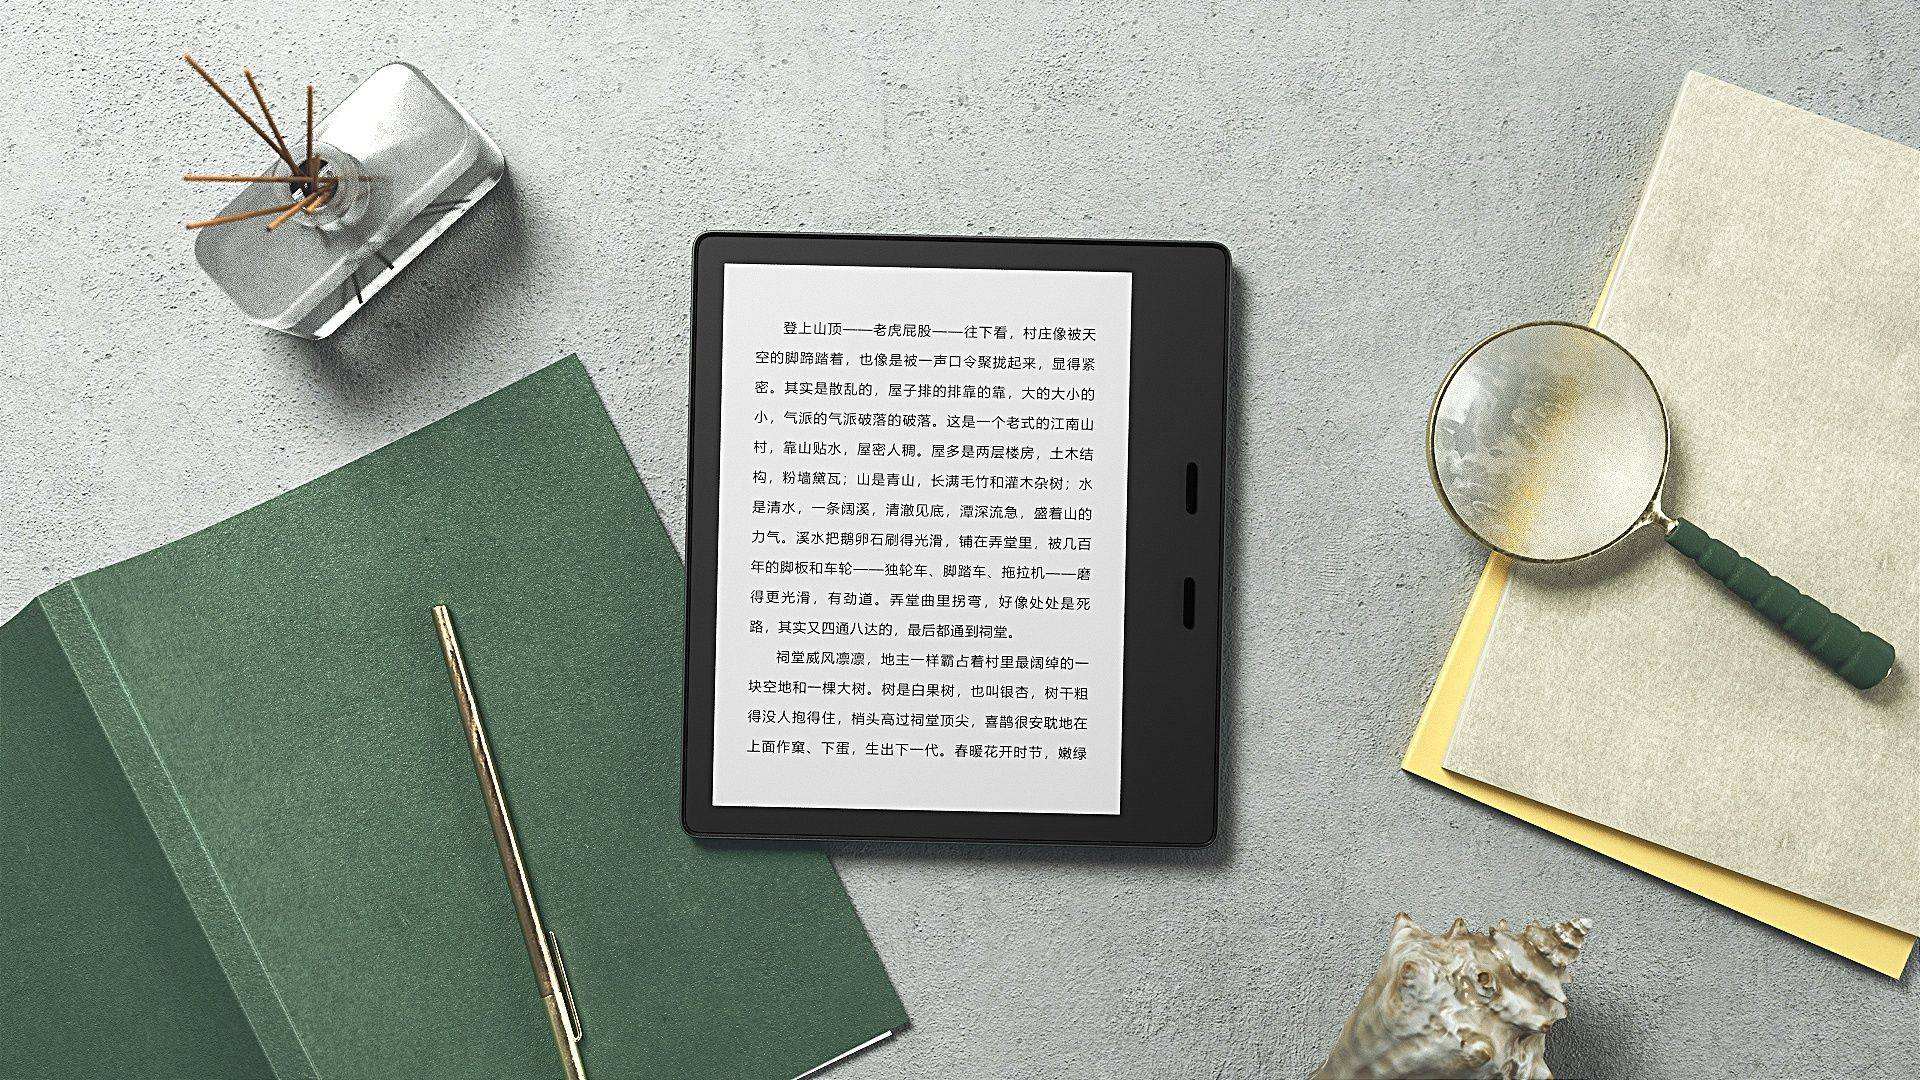 登上山顶——老虎屁股——往下看，村庄像被天
空的脚蹄踏着，也像是被一声口令聚拢起来，显得紧
密。其实是散乱的，屋子排的排靠的靠，大的大小的
小，气派的气派破落的破落。这是一个老式的江南山
村，靠山贴水，屋密人稠。屋多是两层楼房，土木结
构，粉墙黛瓦；山是青山，长满毛竹和灌木杂树；水
是清水，一条阔溪，清澈见底，潭深流急，盛着山的
力气。溪水把鹅卵石刷得光滑，铺在弄堂里，被几百
年的脚板和车轮——独轮车、脚踏车、拖拉机——磨
得更光滑，有劲道。弄堂曲里拐弯，好像处处是死
路，其实又四通八达的，最后都通到祠堂。
祠堂威风凛凛，地主一样霸占着村里最阔绰的一
块空地和一棵大树。树是白果树，也叫银杏，树干粗
得没人抱得住，梢头高过祠堂顶尖，喜鹊很安耽地在
上面作窠、下蛋，生出下一代。春暖花开时节，嫩绿